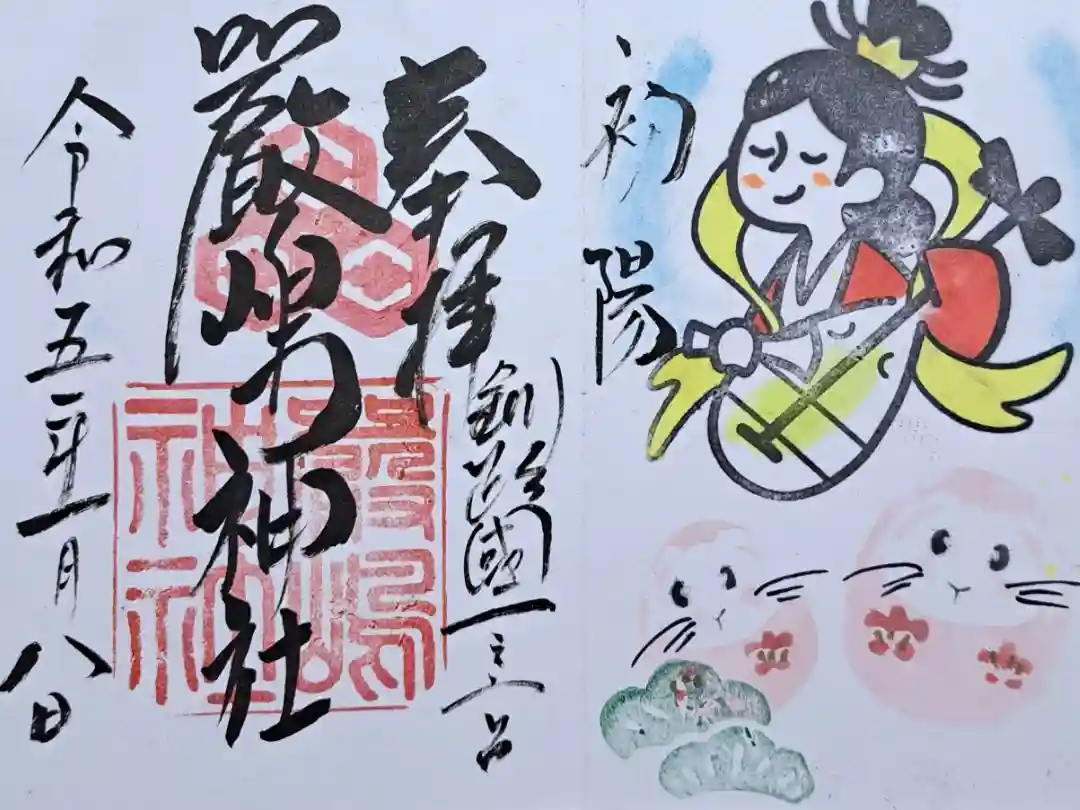 初陽
奉拝
釧路國一之宮
嚴島神社
嚴嶋神社
令和五年一月八日